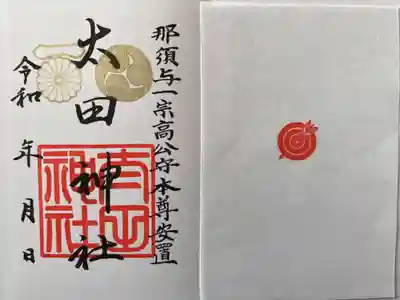 那須与一宗高公守本尊安置
太田神社
令和 年 月 日
太田神社